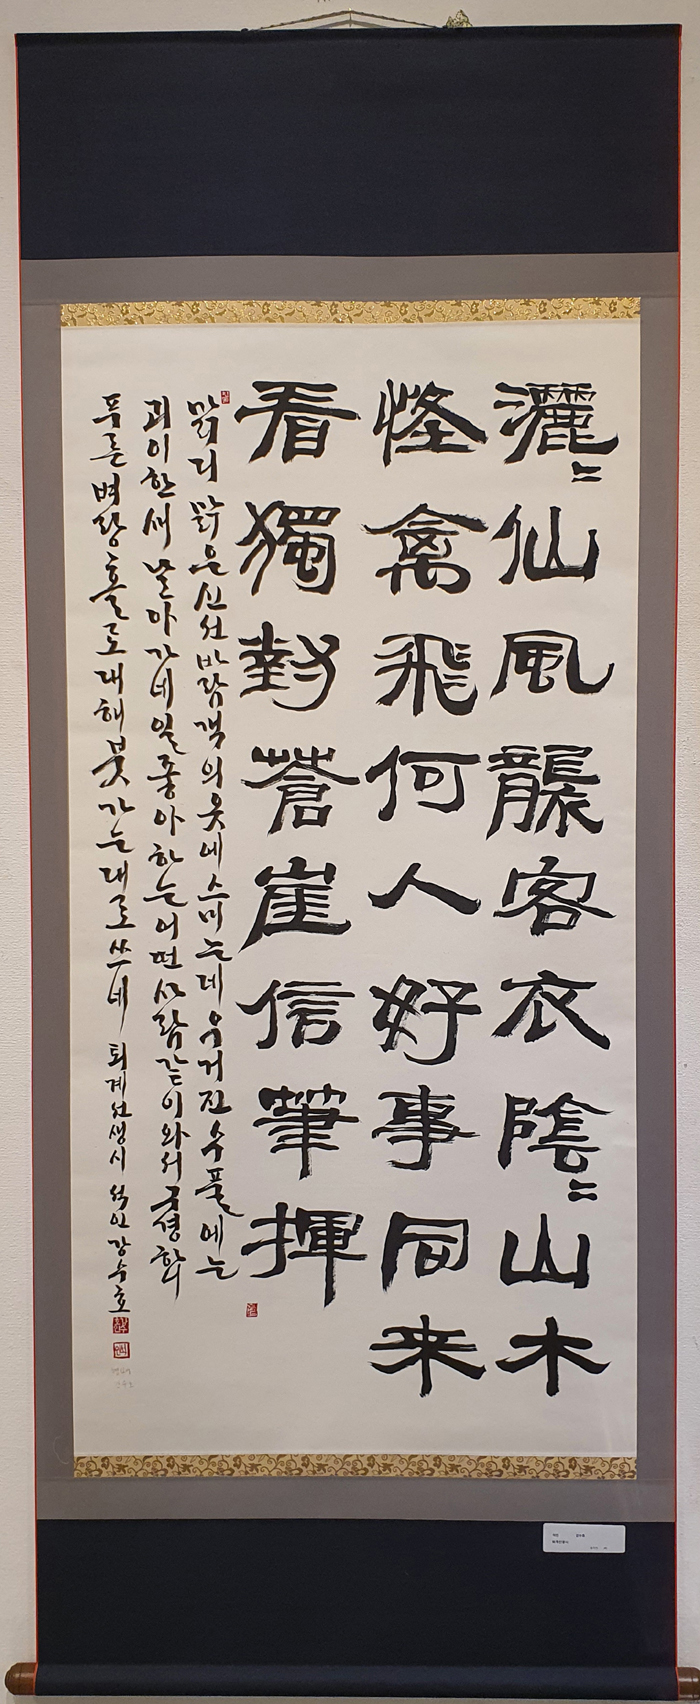 灑〻仙風襲客衣陰〻山木
怪禽飛何人好事同来
看獨對蒼崖信筆揮
맑디 맑은 신선 바람 객의 옷에 스미는데 우거진 수풀에는
괴이한 새 날아가네 일 좋아하는 어떤 사람 같이 와서
푸른 벼랑 홀로 대해 붓 가는 대로 쓰네 퇴계선생시 석인 강수효